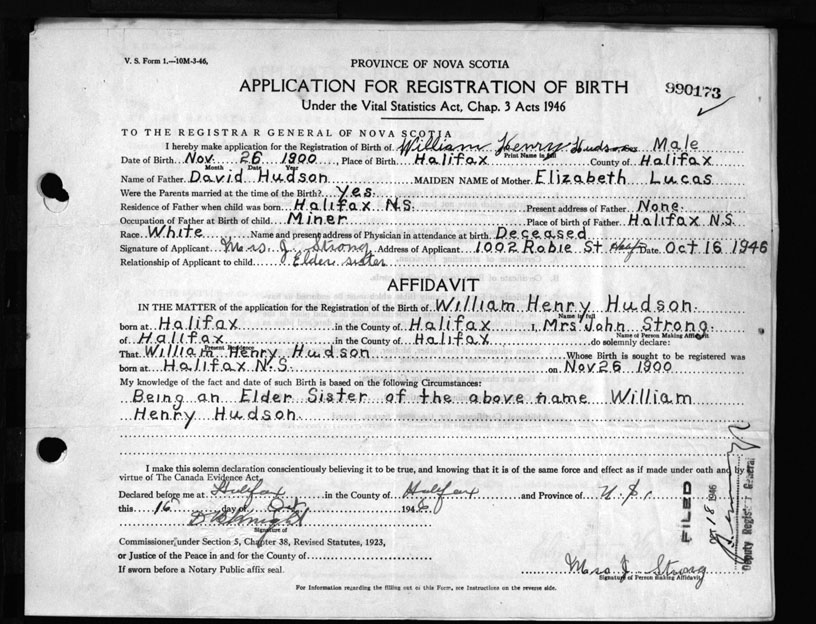 V. S. Form 1.—10M-3-46,
PROVINCE OF NOVA SCOTIA
APPLICATION FOR REGISTRATION OF BIRTH
990173
Under the Vital Statistics Act, Chap. 3 Acts 1946
TO THE REGISTRAR GENERAL OF NOVA SCOTIA
I hereby make application for the Registration of Birth of William Henry Hudson Male
Print Name in full
Date of Birth Nov. 26 1900, Place of Birth Halifax County of Halifax
Month Date Year
Name of Father David Hudson MAIDEN NAME of Mother Elizabeth Lucas
Were the Parents married at the time of the Birth? Yes.
Residence of Father when child was born Halifax N.S. Present address of Father None.
Occupation of Father at Birth of child Miner Place of birth of Father Halifax N.S.
Race White Name and present address of Physician in attendance at birth Deceased
Signature of Applicant Mrs. J Strong Address of Applicant 1002 Robie St Hfx Date Oct 16 1946
Relationship of Applicant to child Elder sister
AFFIDAVIT
IN THE MATTER of the application for the Registration of the Birth of William Henry Hudson
Name in full
born at Halifax in the County of Halifax I, Mrs John Strong
Name of Person Making Affidavit
of Halifax in the County of Halifax do solemnly declare:
Present Residence
That William Henry Hudson Whose Birth is sought to be registered was
born at Halifax N.S. on Nov 26 1900
My knowledge of the fact and date of such Birth is based on the following Circumstances:
Being an Elder Sister of the above name William
Henry Hudson
I make this solemn declaration conscientiously believing it to be true, and knowing that it is of the same force and effect as if made under oath and by
virtue of The Canada Evidence Act.
Declared before me at Halifax in the County of Halifax and Province of N.S.
this 16 day of Oct 1946
Signature of
Commissioner, under Section 5, Chapter 38, Revised Statutes, 1923,
or Justice of the Peace in and for the County of
If sworn before a Notary Public affix seal.
Mrs J Strong
Signature of Person making Affidavit
For Information regarding the filling out of this Form, see Instructions on the reverse side.
FILED
18 1946
Deputy Registrar General